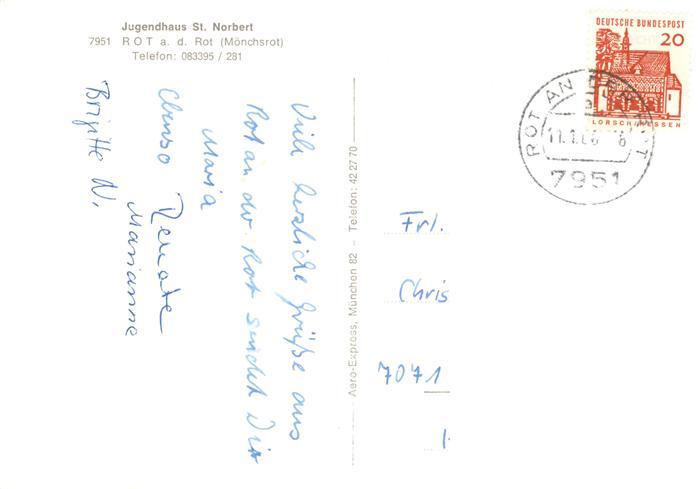 Jugendhaus St. Norbert
7951 ROT a. d. Rot (Mönchsrot)
Telefon: 083395 / 281
Viele herzliche Grüße aus
Rot an der Rot sendet Dir
Maria
Ebenso Renate
Marianne
Brigitte N.
Aero-Express, München 82 - Telefon: 42 27 70
DEUTSCHE BUNDESPOST
20
LORSCH/HESSEN
ROT AN DER ROT
7951
Frl.
Chris
7071